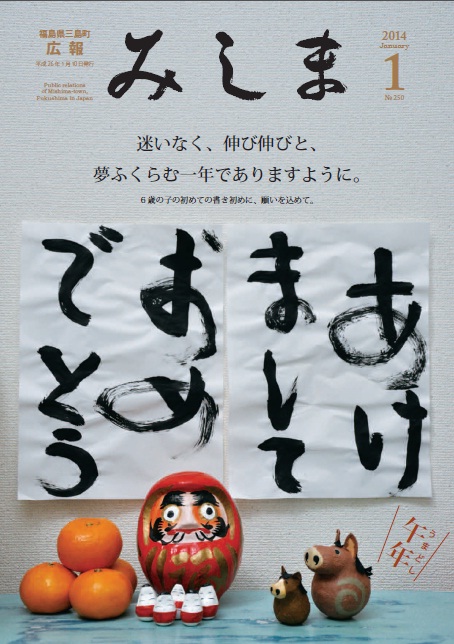 福島県三島町
広報
平成26年1月10日発行
Public relations
of Mishima-town,
Fukushima in Japan
みしま
2014
January
1
No.250
迷いなく、伸び伸びと、
夢ふくらむ一年でありますように。
6歳の子の初めての書き初めに、願いを込めて。
あけ
まして
おめ
でとう
うまどし
午年